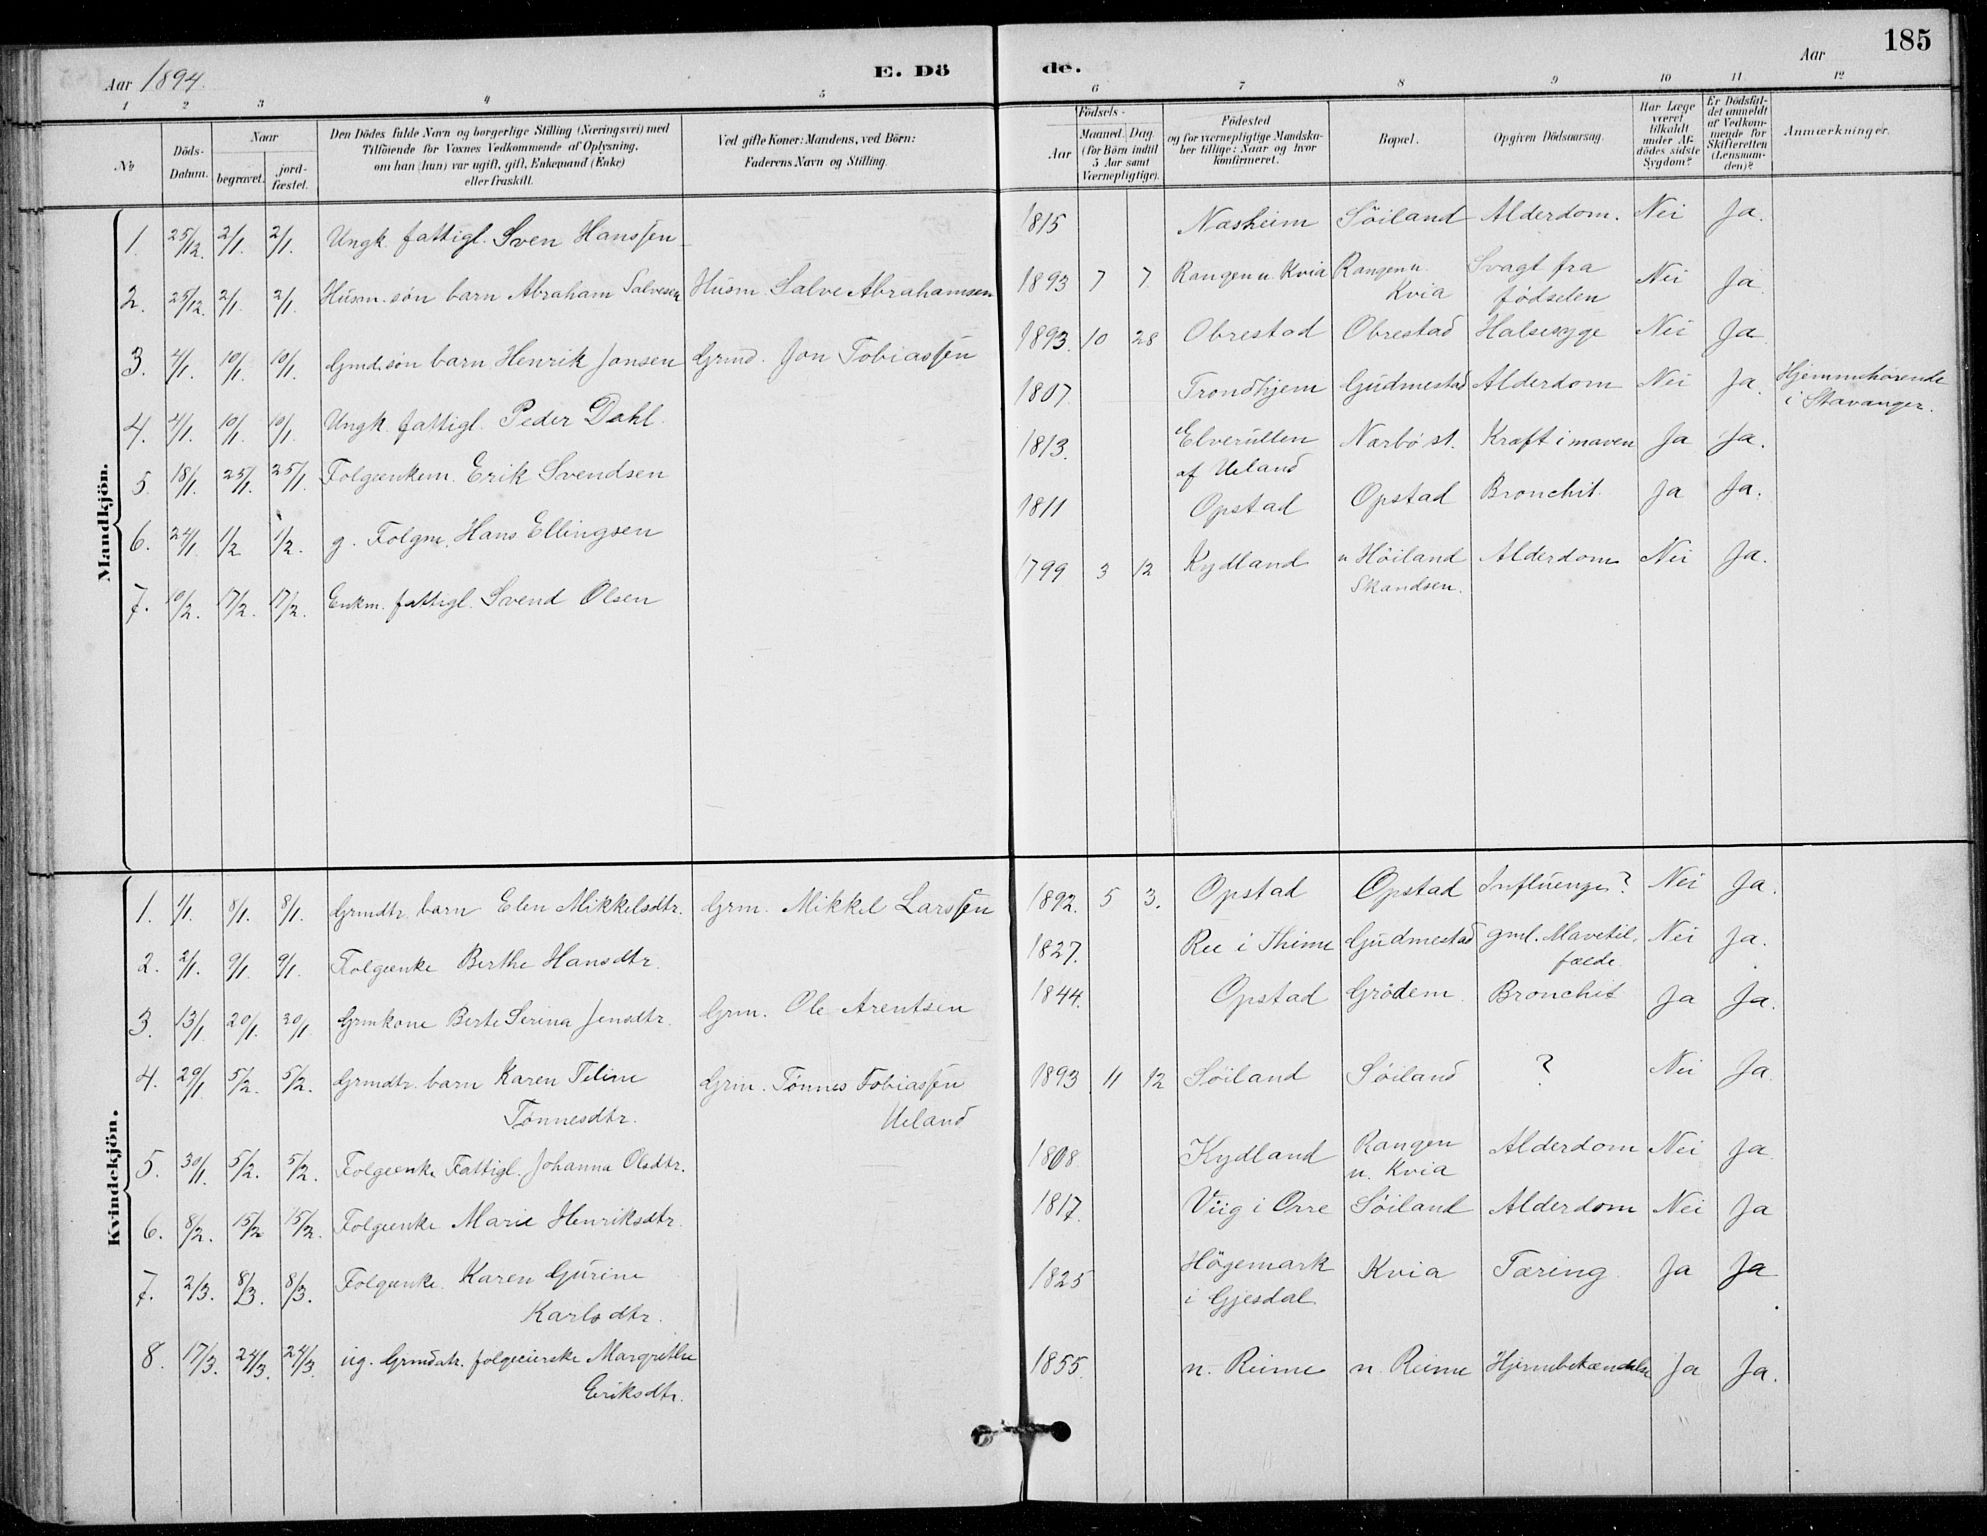 185
Aar 1894.
E. Dö
de.
Aar
1 2 3 4 5
6 7 8 9 10 11 12
No
Döds-Datum.
Naar
begravet.
jord-fæstet.
Den Dödes fulde Navn og borgerlige Stilling (Næringsvei) med
Tilföiende for Voxnes Vedkommende af Oplysning,
om han (hun) var ugift, gift, Enkemand (Enke)
eller fraskilt.
Ved gifte Koner: Mandens, ved Börn:
Faderens Navn og Stilling.
Födsels-
Aar
Maaned. Dag.
(for Börn indtil
5 Aar samt
Værnepligtige).
Födested
og for værnepligtige Mandska-
ber tillige: Naar og hvor
konfirmeret.
Bopæl.
Opgiven Dödsaarsag.
Har Læge
været
tilkaldt
under Af-
dödes sidste
Sygdom?
Er Dödsfal-
det anmeldt
af Vedkom-
mende for
Skifteretten
(Lensman-
den)?
Anmærkninger.
Mandkjön.
1. 25/12. 2/1. 2/1. Ungk. fattigl. Sven Hanssen 1815 Næsheim Söiland Alderdom. Nei Ja.
2. 25/12. 2/1. 2/1. Husm. søn barn Abraham Salvesen Husm. Salve Abrahamsen 1893 7 7 Rangen u. Kvia Rangen u. Kvia Svagt fra fødselen Nei Ja
3. 4/1. 10/1. 10/1. Gmd. søn barn Henrik Jonsen Grmd. Jon Tobiassen 1893. 10 28 Obrestad Obrestad Halsesyge Nei Ja
4. 4/1. 10/1. 10/1. Ungk. fattigl. Peder Dahl 1807 Trondhjem Gudmestad Alderdom Nei Ja. Hjemmehørende i Stavanger.
5. 18/1. 25/1. 25/1. Folgeenkem. Erik Svendsen 1813. af Ueland Nærbø st. Kræft i maven Ja Ja.
6. 24/1. 1/2. 1/2. g. Folgm. Hans Ellingsen 1811 Opstad Opstad Bronchit. Ja Ja.
7. 10/2. 17/2. 17/2. Enkm. fattigl. Svend Olsen 1799 3 12 Kydland u Höiland Skandsen. Alderdom Nei Ja.
Kvindekjön.
1. 1/1. 8/1. 8/1. Grmdtr. barn Elen Mikkelsdtr. Grm. Mikkel Larssen 1892. 5 3. Opstad Opstad Influenza? Nei Ja.
2. 2/1. 9/1. 9/1. Folgeenke Berthe Hansdtr. 1827. Ree i Thime Gudmestad gml. Mavetil-fælde. Nei Ja.
3. 13/1. 20/1. 20/1. Grmkone Berte Serina Jensdtr. Grm. Ole Arentsen 1844. Opstad Grödem Bronchit Ja Ja.
4. 29/1. 5/2. 5/2. Grmdtr. barn Karen Teline Tønnesdtr. Grm. Tønnes Tobiassen Ueland 1893 11 12 Söiland Söiland ? Nei Ja.
5. 30/1. 5/2. 5/2. Folgeenke Fattigl. Johanna Olsdtr. 1808 Kydland Rangen u. Kvia Alderdom Nei Ja
6. 8/2. 15/2 15/2. Folgeenke Marie Henriksdtr. 1817. Viig i Orre Söiland Alderdom Nei Ja
7. 2/3. 8/3. 8/3. Folgeenke. Karen Gurine Karlsdtr. 1825 Höjemark i Gjesdal Kvia Tæring Ja Ja
8. 17/3. 24/3. 24/3. ug. Grmdatr. Margrethe Eriksdtr. 1855. n. Reime n. Reime Hjernebetændelse Ja Ja.